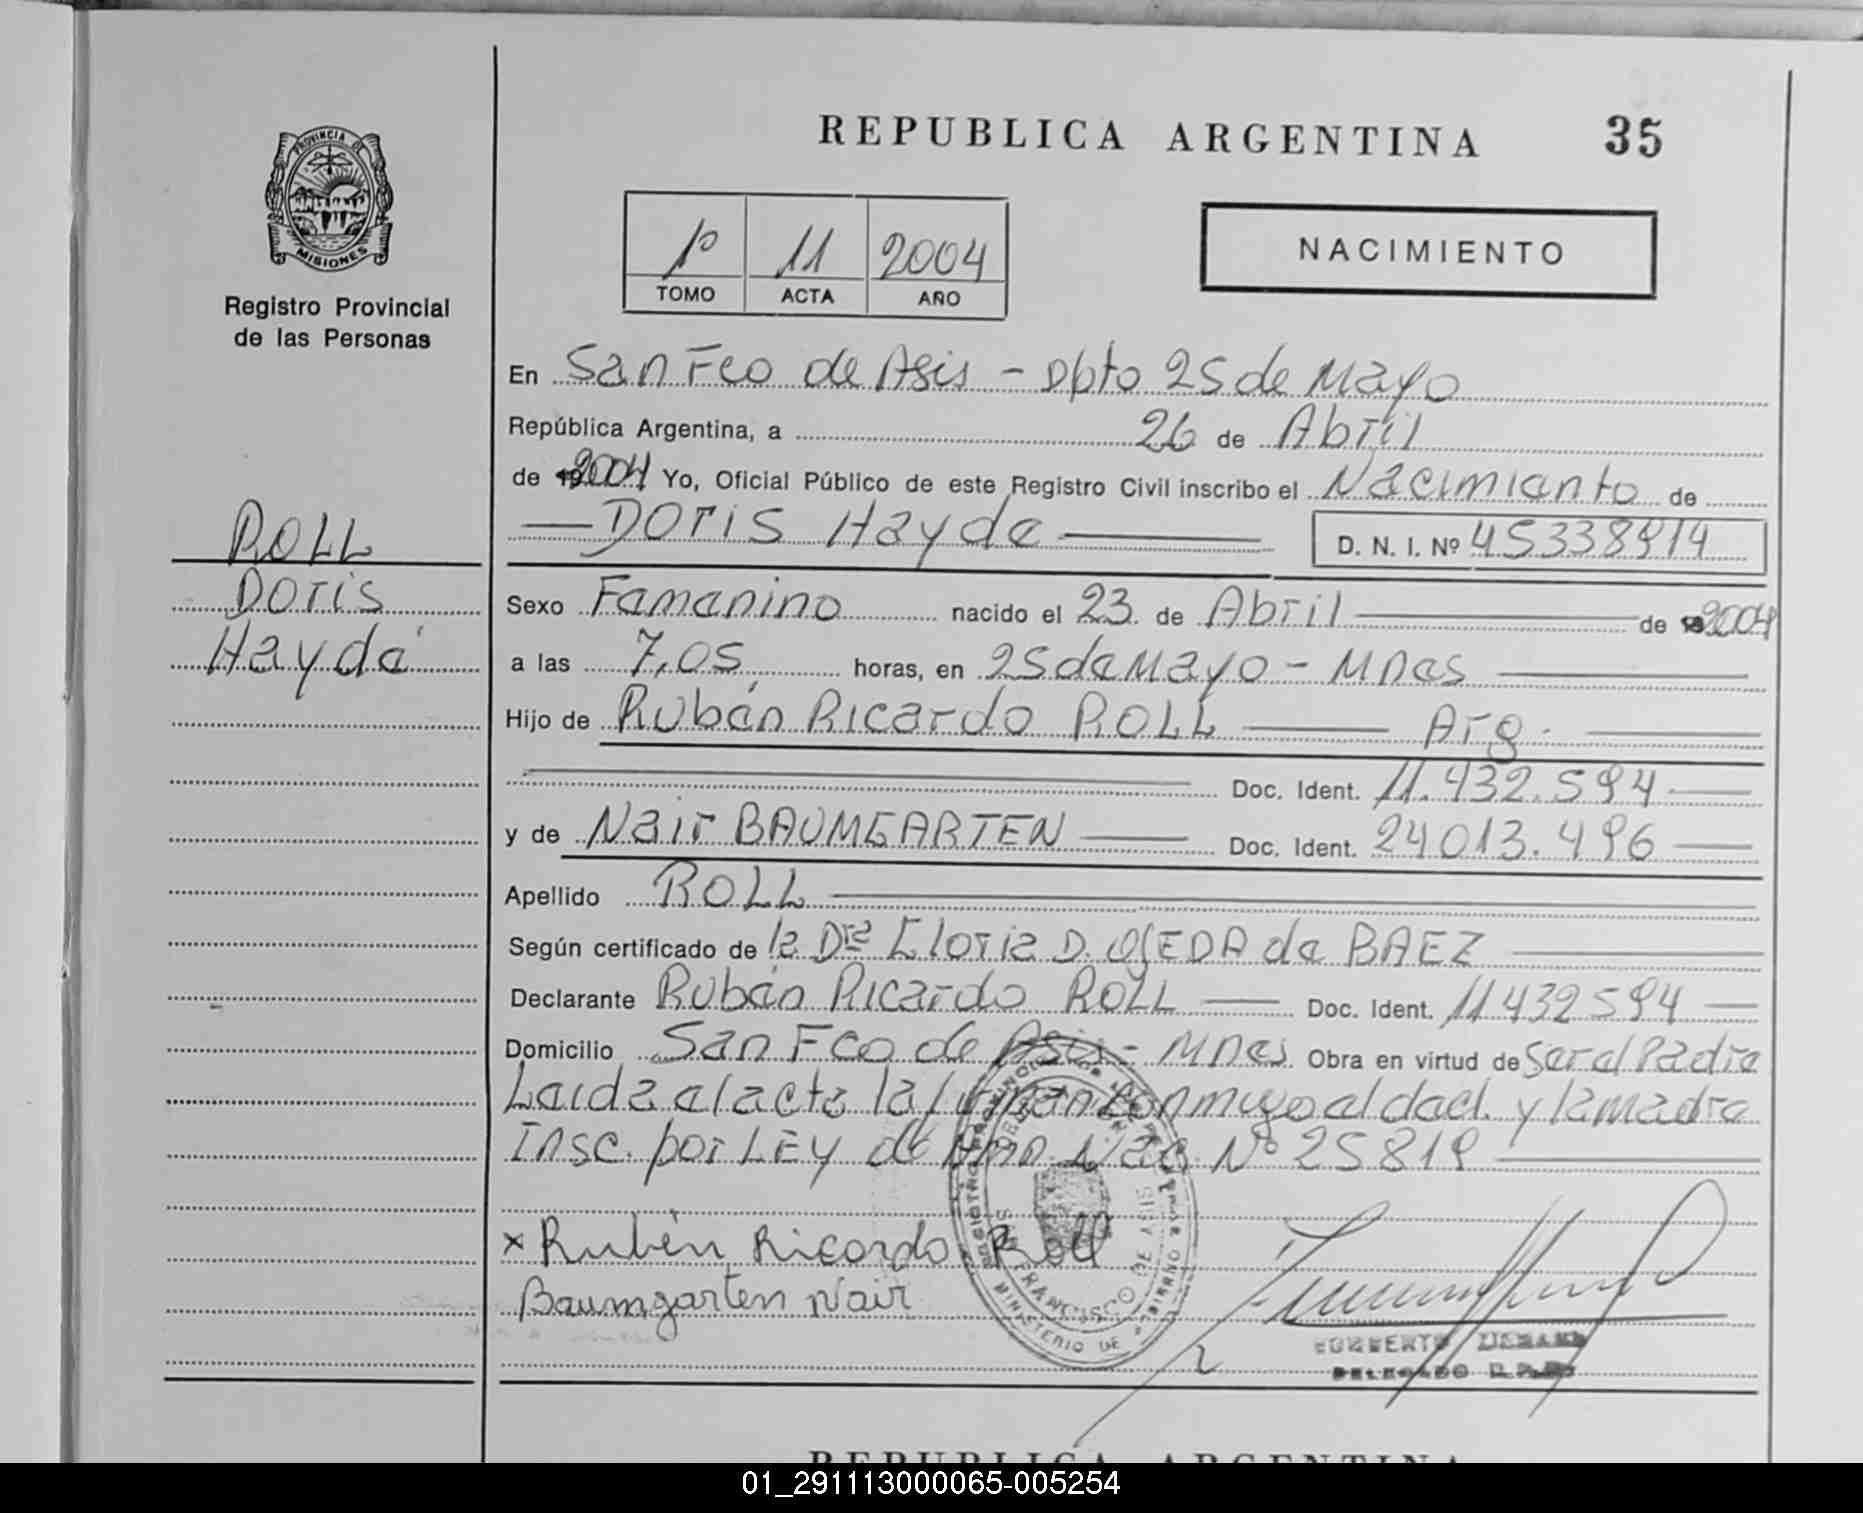 REPUBLICA ARGENTINA 35
PROVINCIA DE
MISIONES
Registro Provincial
de las Personas
1º 11 2004
TOMO ACTA AÑO
NACIMIENTO
En San Fco de Asis - Dpto 25 de Mayo
República Argentina, a 26 de Abril
de 2004 Yo, Oficial Público de este Registro Civil inscribo el Nacimiento de
Doris Hayde
D. N. I. Nº
ROLL
Doris
Haydé
Sexo Femenino nacido el 23 de Abril de 2004
a las 7,05 horas, en 25 de Mayo - Mnes
Hijo de Rubén Ricardo ROLL Arg.
Doc. Ident. 11.432.594
y de Nair BAUMGARTEN Doc. Ident. 24013.496
Apellido ROLL
Según certificado de la Dra Gloria D. OJEDA de BAEZ
Declarante Rubén Ricardo ROLL Doc. Ident. 11432594
Domicilio San Fco de Asis - Mnes Obra en virtud de Ser el Padre
Leída el acta la firman conmigo el decl. y la madre
Insc. por LEY de Amn. Nac. Nº 25819
x Rubén Ricardo Roll
Baumgarten Nair
SAN FRANCISCO DE ASIS
MINISTERIO DE
DELEGADO
REPUBLICA ARGENTINA
01_291113000065-005254